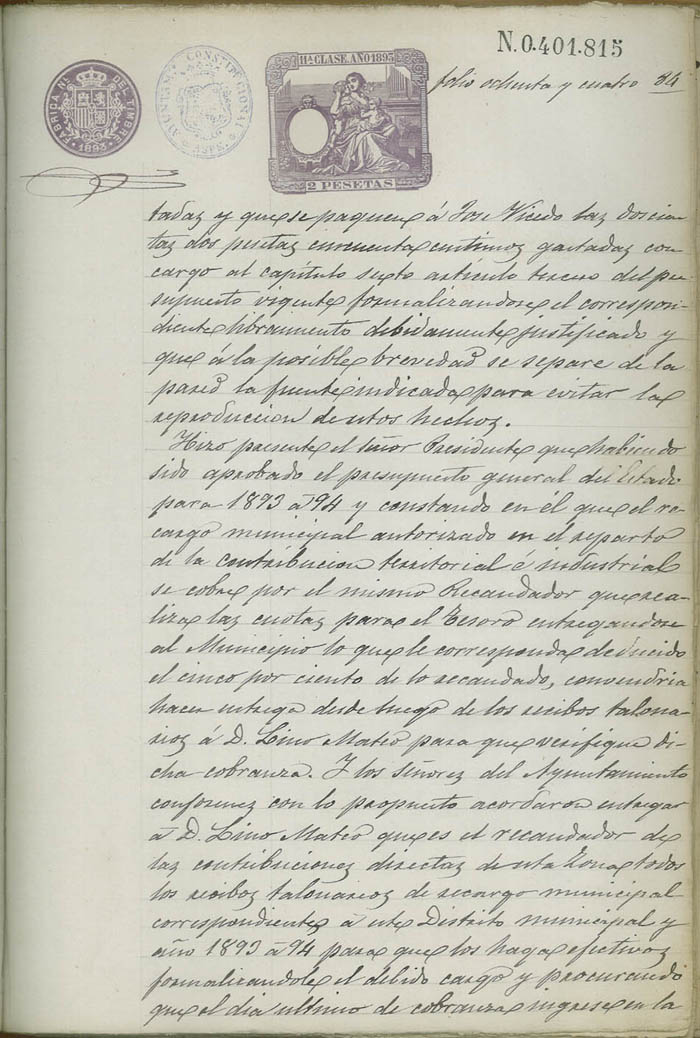 N.0.401.815
FABRICA NL. DEL TIMBRE
1893
AYUNTAMTO CONSTITUCIONAL
ASPE
11ª CLASE. AÑO 1893
2 PESETAS
folio ochenta y cuatro 84
tadas y que se paguen á Jose Vicedo las doscien
tas dos pesetas cincuenta centimos gastadas con
cargo al capitulo sexto articulo tercero del pre
supuesto vigente formalizandose el correspon
diente libramiento debidamente justificado y
que á la posible brevedad se separe de la
pared la fuente indicada para evitar la
reproduccion de estos hechos.
Hizo presente el señor Presidente que habiendo
sido aprobado el presupuesto general del Estado
para 1893 á 94 y constando en él que el re
cargo municipal autorizado en el reparto
de la contribucion territorial é industrial
se cobre por el mismo Recaudador que rea-
liza las cuotas para el Tesoro entregandose
al Municipio lo que le corresponda deducido
el cinco por ciento de lo recaudado, convendria
hacer entrega desde luego de los recibos talona
rios á D. Lino Mateo para que verifique di-
cha cobranza. Y los señores del Ayuntamiento
conformes con lo propuesto acordaron entregar
á D. Lino Mateo que es el recaudador de
las contribuciones directas de esta Zona todos
los recibos talonarios de recargo municipal
correspondientes á este Distrito municipal y
año 1893 á 94 para que los haga efectivos
formalizandole el debido cargo y procurando
que el dia ultimo de cobranza ingrese en la